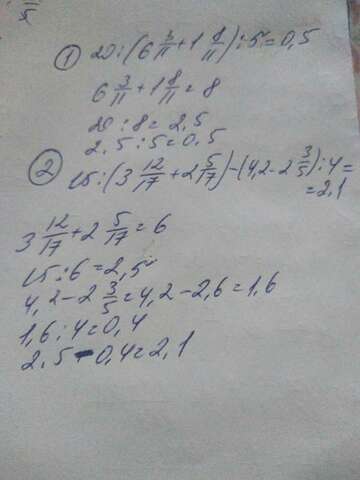 5
① 20 : (6 3/11 + 1 8/11) : 5 = 0,5
6 3/11 + 1 8/11 = 8
20 : 8 = 2,5
2,5 : 5 = 0,5
② 15 : (3 12/17 + 2 5/17) - (4,2 - 2 3/5) : 4 =
= 2,1
3 12/17 + 2 5/17 = 6
15 : 6 = 2,5
4,2 - 2 3/5 = 4,2 - 2,6 = 1,6
1,6 : 4 = 0,4
2,5 - 0,4 = 2,1